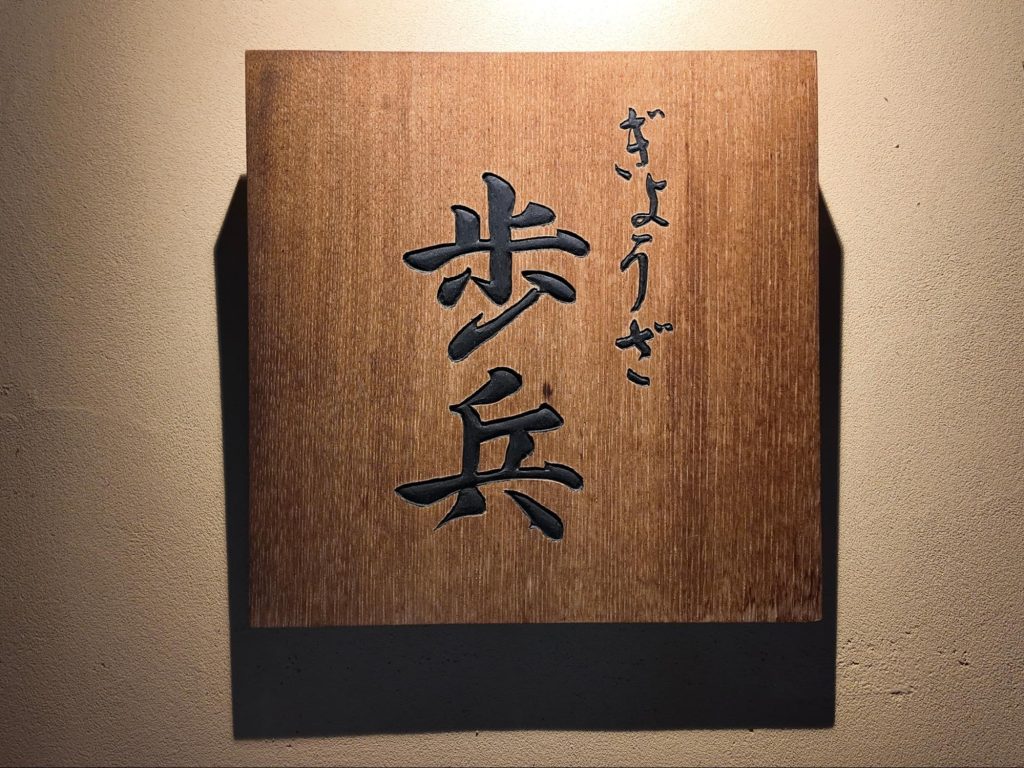 ぎょうざ
歩兵